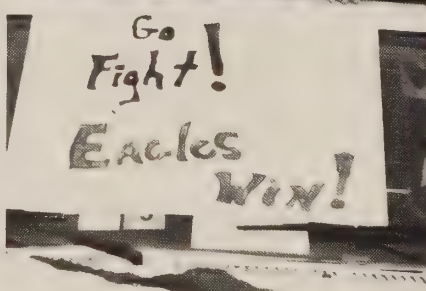 Go
Fight!
Eagles
Win!